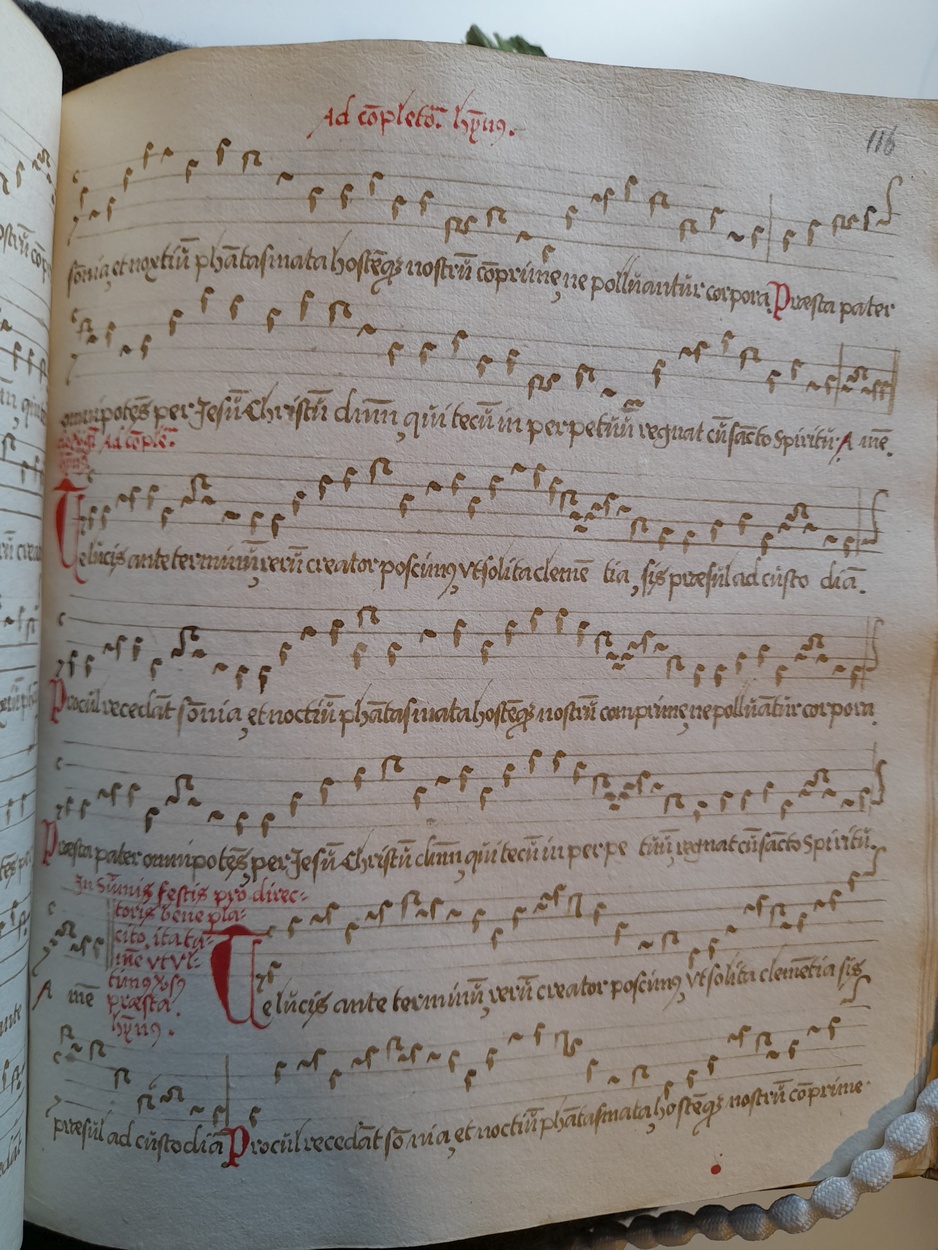 Ad cōpletō. hȳnꝰ.
116
sōnia, et noxtiū phātasmata hostēqꝫ nostrū cōprime, ne polluantur corpora. Præsta pater
omnipotēs per Jesū Christū dnm, qui tecū in perpetuū regnat cū sācto Spiritu. A mē.
Ad cōple.
Te lucis ante terminū, rerū creator poscimꝰ, vt solita clemē tia, sis præsul ad custo diā.
Procul recedāt sōnia, et noctiū phātasmata hostēqꝫ nostrū comprime, ne polluātur corpora.
Præsta pater omnipotēs, per Jesū Christū dnm, qui tecū in perpe tuū, regnat cū sācto Spiritu.
In Sūmis festis pro direc-
toris bene pla-
cito, ita tā-
mē vt vl-
timꝰ
præsta
hȳnꝰ.
A mē
Te lucis ante terminū, rerū creator poscimꝰ, vt solita clemētia sis
præsul ad custodiā Procul recedāt sō nia, et noctiū phātasmata, hostēqꝫ nostrū cōprime